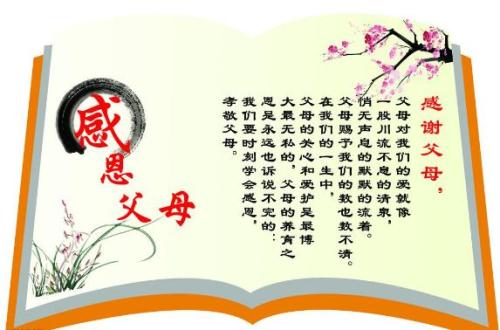 感恩父母
感谢父母，
父母对我们的爱就像
一股川流不息的清泉，
悄无声息的默默的流着。
父母赐予我们的数也数不清。
在我们的一生中，
父母的关心和爱护是最博
大最无私的，父母的养育之
恩是永远也诉说不完的：
我们要时刻学会感恩，
孝敬父母。